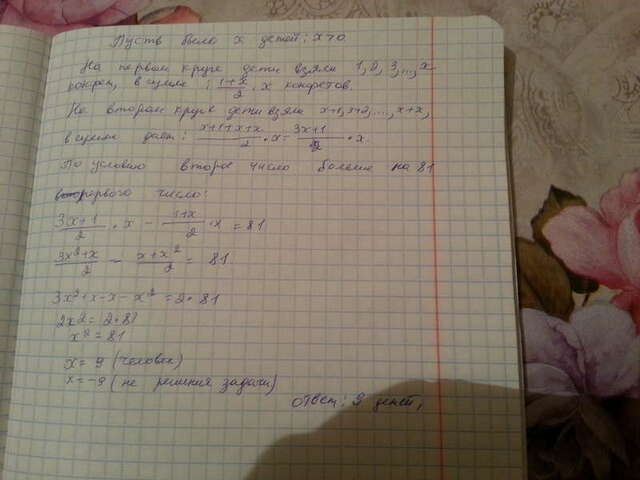 Пусть было x детей; x>0
На первом круге дети взяли 1, 2, 3,..., x
конфет, в сумме : (1+x)/2 · x конфетов.
На втором круге дети взяли x+1, x+2,..., x+x,
в сумме дают: (x+1+x+x)/2 · x = (3x+1)/2 · x.
По условию второе число больше на 81
первого число:
(3x+1)/2 · x - (1+x)/2 · x = 81
(3x²+x)/2 - (x+x²)/2 = 81
3x²+x-x-x² = 2·81
2x² = 2·81
x² = 81
x = 9 (человек)
x = -9 (не решения задачи)
ответ: 9 детей,